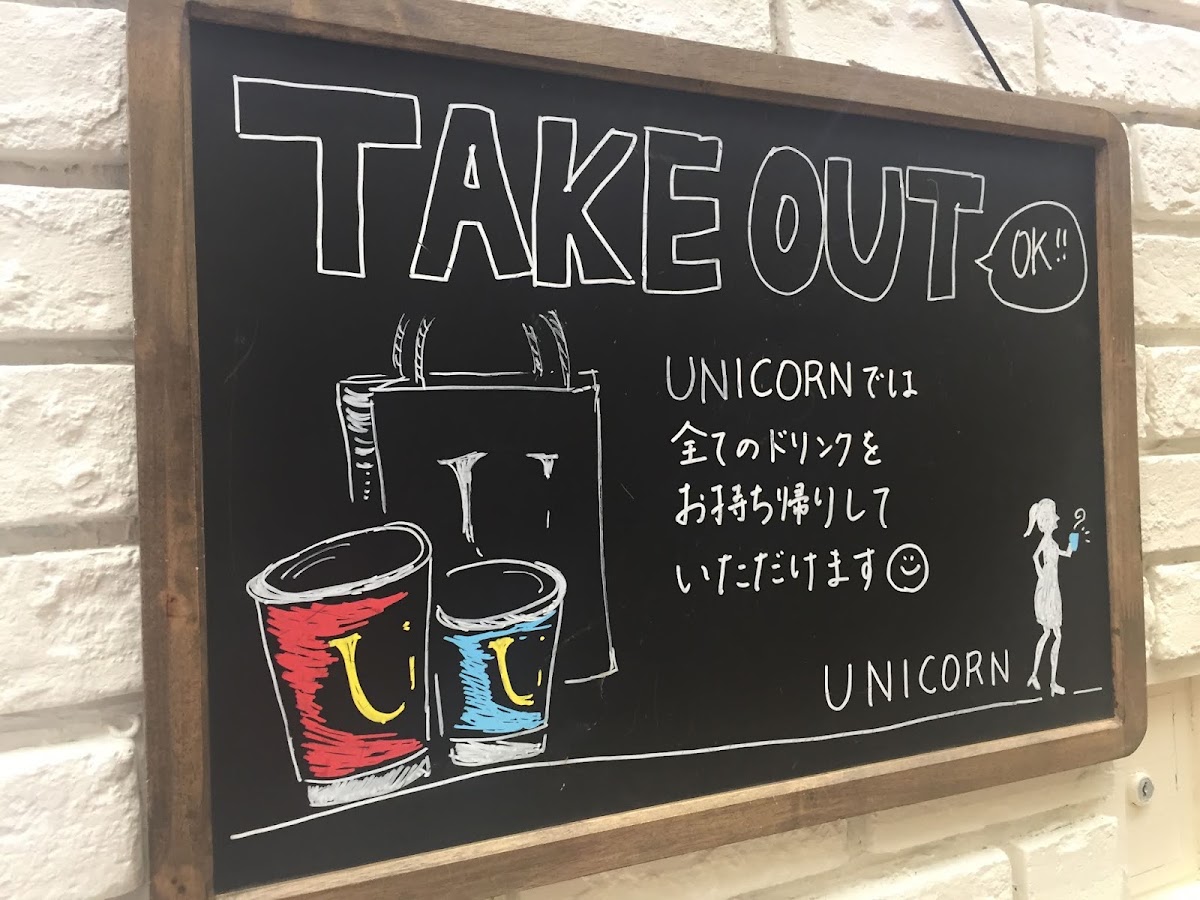 TAKE OUT
OK!!
UNICORNでは
全てのドリンクを
お持ち帰りして
いただけます
UNICORN
U
U
U